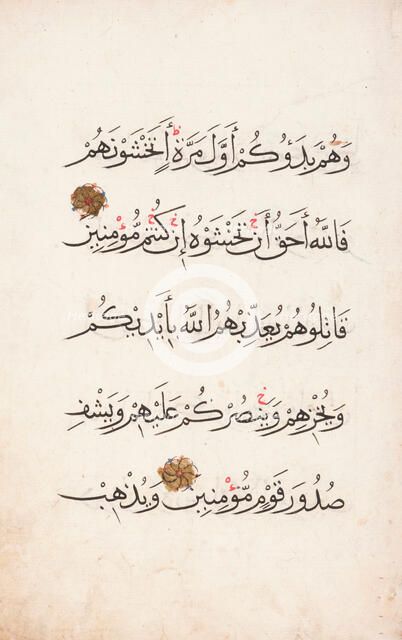 وَهُم بَدَؤُكُمْ أَوَّلَ مَرَّةٍ أَتَخْشَوْنَهُمْ
فَاللَّهُ أَحَقُّ أَن تَخْشَوْهُ إِن كُنتُم مُّؤْمِنِينَ
قَاتِلُوهُمْ يُعَذِّبْهُمُ اللَّهُ بِأَيْدِيكُمْ
وَيُخْزِهِمْ وَيَنصُرْكُمْ عَلَيْهِمْ وَيَشْفِ
صُدُورَ قَوْمٍ مُّؤْمِنِينَ وَيُذْهِبْ